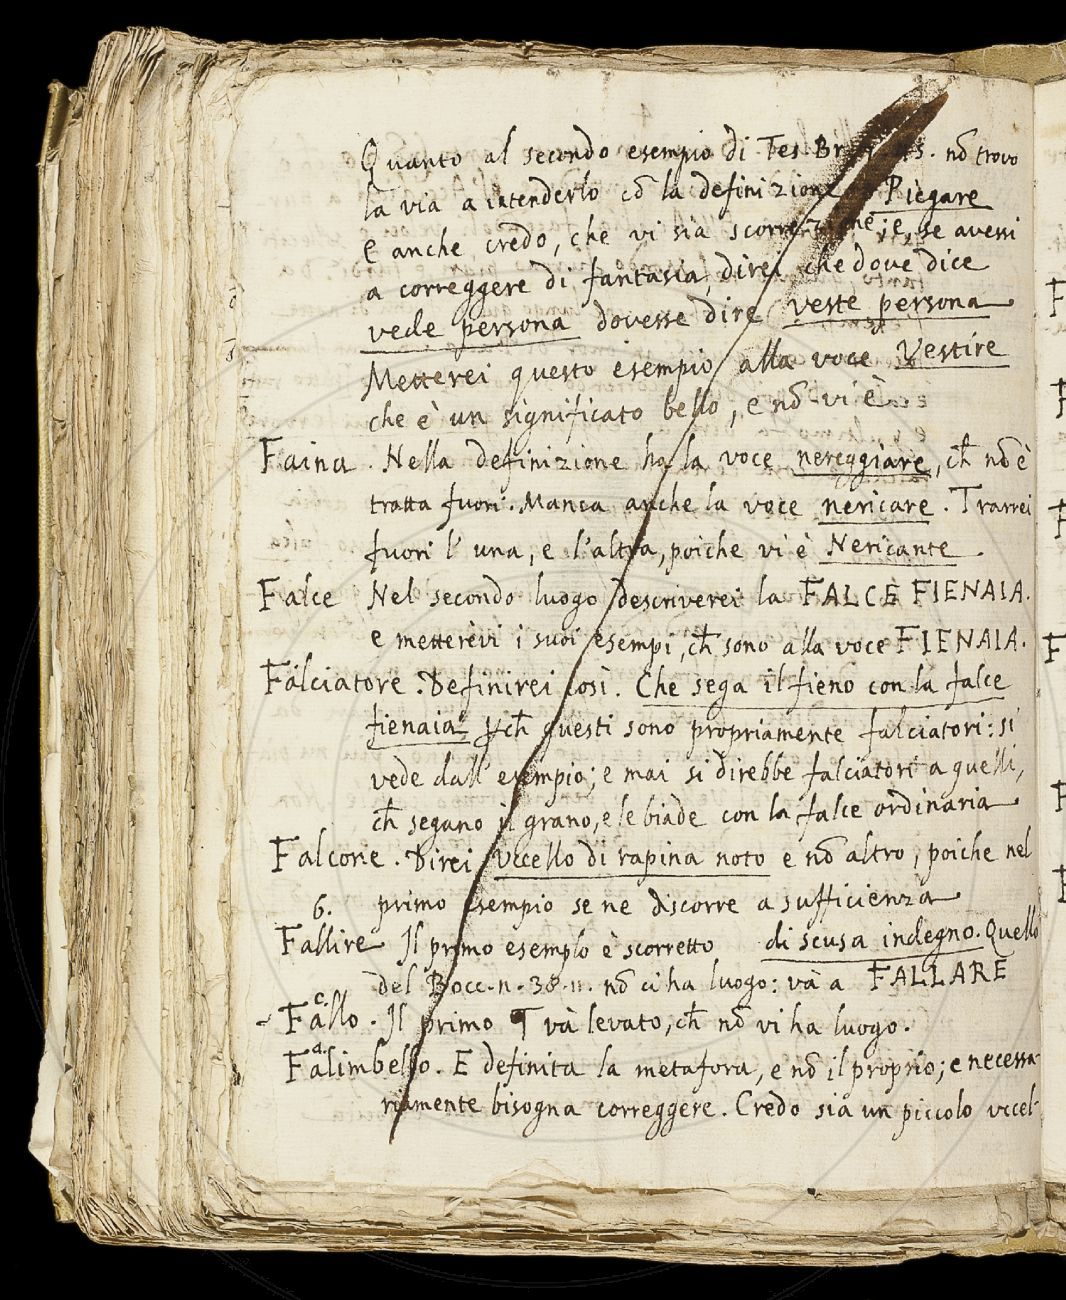 Quanto al secondo esempio di Tes. Br. nō trovo
la via a intenderlo cō la definizione Piegare
e anche credo, che vi sia scorrezione; e, se avessi
a correggere di fantasia, direi che dove dice
vede persona dovesse dire veste persona
Metterei questo esempio alla voce Vestire
che è un significato bello, e nō vi è
Faina. Nella definizione ha la voce nereggiare, ch̄ nō è
tratta fuori. Manca anche la voce nericare. Trarrei
fuori l'una, e l'altra, poiche vi è Nericante.
Falce Nel secondo luogo descriverei la FALCE FIENAIA.
e mettereivi i suoi esempi, ch̄ sono alla voce FIENAIA.
Falciatore. Definirei così. Che sega il fieno con la falce
fienaia; ꝑch̄ questi sono propriamente falciatori: si
vede dall'esempio; e mai si direbbe falciatori a quelli,
ch̄ segano il grano, e le biade con la falce ordinaria
Falcone. Direi Uccello di rapina noto e nō altro, poiche nel
6. primo esempio se ne discorre a sufficienza
Fallire Il primo esemplo è scorretto di scusa indegno. Quello
del Bocc. n. 38. 11. nō ci ha luogo: và a FALLARE
c
Fallo. Il primo T và levato, ch̄ nō vi ha luogo.
d
Falimbello. E definita la metafora, e nō il proprio; e necessa-
riamente bisogna correggere. Credo sia un piccolo uccel-